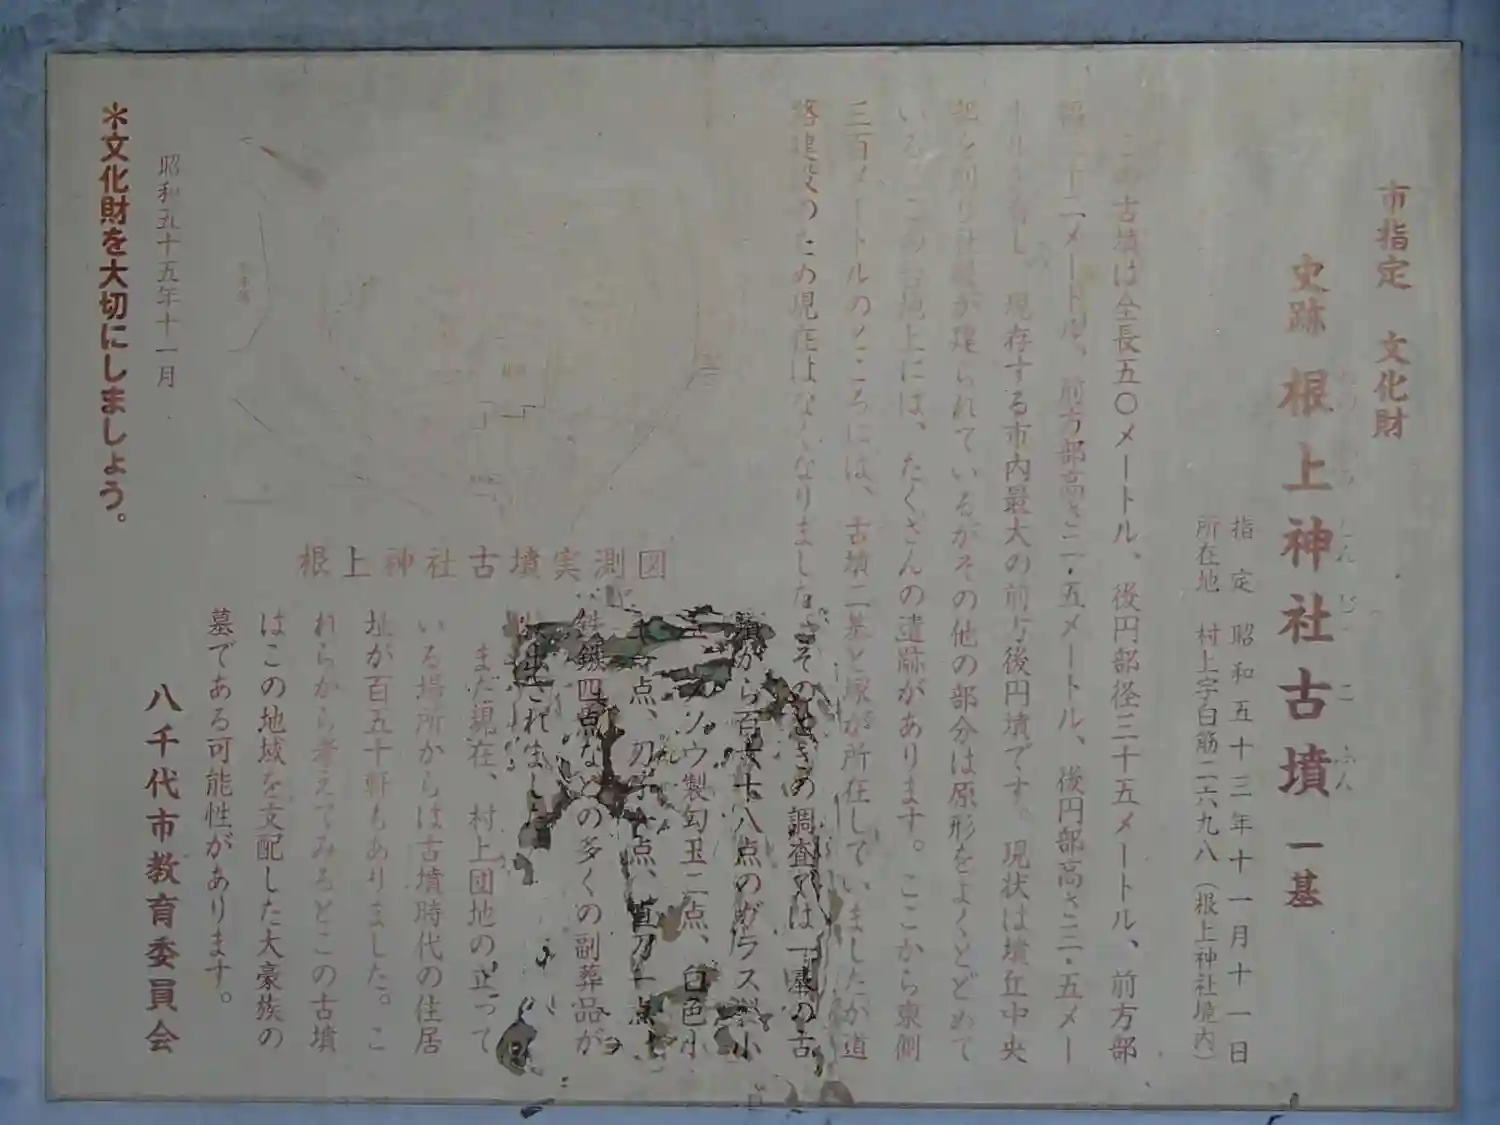 市指定 文化財
史跡 根上神社古墳 一基
指定 昭和五十三年十一月十一日
所在地 村上字白筋二六九八(根上神社境内)
この古墳は全長五〇メートル、後円部径三十五メートル、前方部
二十二メートル、前方部高さ三・五メートル、後円部高さ三・五メー
トルを有し、現存する市内最大の前方後円墳です。現状は墳丘中央
部を削り社殿が建られているがその他の部分は原形をよくとどめて
いる。この台地上には、たくさんの遺跡があります。ここから東側
三百メートルのところには、古墳二基と塚が所在していましたが道
路建設のため現在はなくなりました。そのときの調査では一基の古
墳から百六十八点のガラス製小
製勾玉二点、白色小
点、刀子 点、直刀一点、
鉄鏃四点などの多くの副葬品が
出されました。
また現在、村上団地の立って
いる場所からは古墳時代の住居
址が百五十軒もありました。こ
れらから考えてみるとこの古墳
はこの地域を支配した大豪族の
墓である可能性があります。
根上神社古墳実測図
昭和五十五年十一月
八千代市教育委員会
*文化財を大切にしましょう。